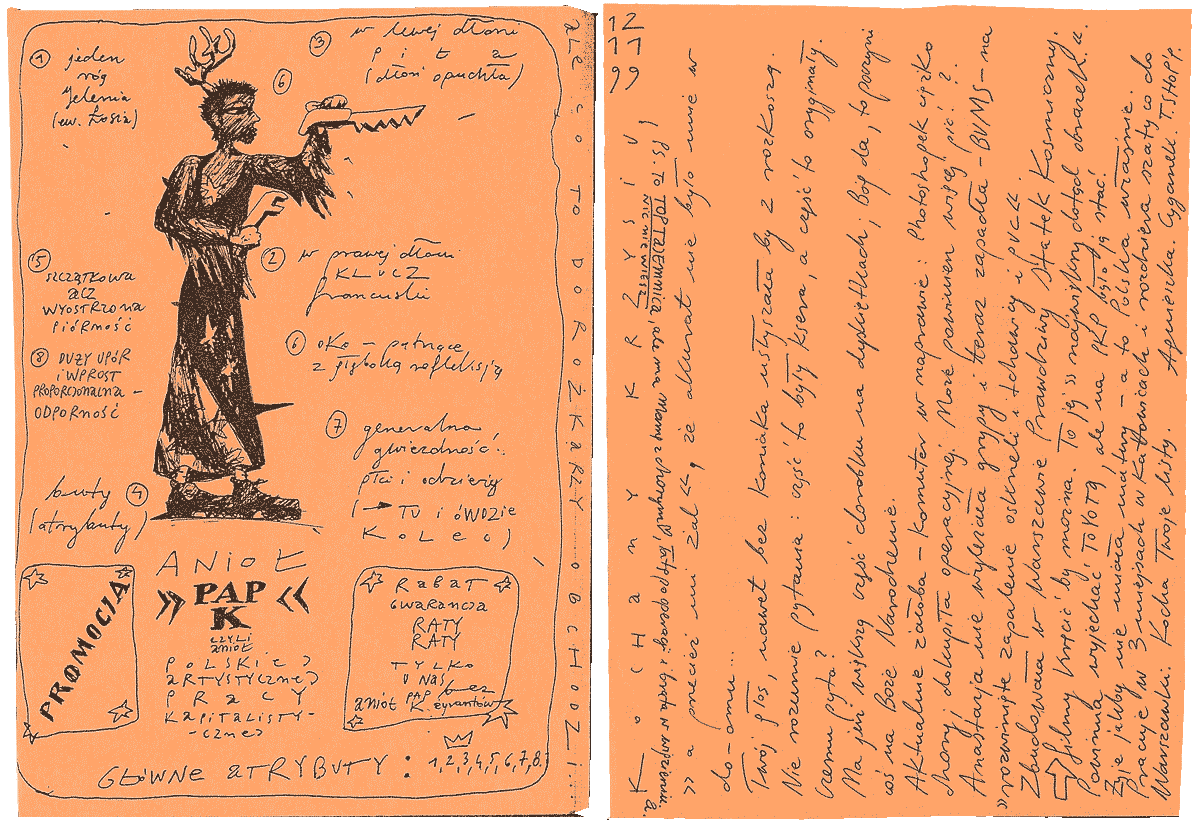 ① jeden
róg
Jelenia
(ew. Łosia)
③ w lewej dłoni
piła
(dłoń opuchła)
⑥
② w prawej dłoni
KLUCZ
francuski
⑤
SZCZĄTKOWA
ACZ
WYOSTRZONA
PIÓRNOŚĆ
⑥ OKO – patrzące
z głęboką refleksją
⑧ DUŻY UPÓR
I WPROST
PROPORCJONALNA –
ODPORNOŚĆ
⑦ generalna
gwiezdność:
płci i odzieży
(→ TU i ÓWDZIE
KOLEC)
buty ④
(atrybuty)
ANIOŁ
»PAP
K«
CZYLI
ANIOŁ
POLSKIEJ
ARTYSTYCZNEJ
PRACY
KAPITALISTY-
-CZNEJ
PROMOCJA
RABAT
GWARANCJA
RATY
RATY
TYLKO
U NAS
anioł PAP K. bez żyrantów
GŁÓWNE ATRYBUTY: 1,2,3,4,5,6,7,8.
ALE CO TO DOROŻKARZY OBCHODZI...
12
11
99
KOCHANY KRZYSIU!
(Ps. To TOP TAJEMNICA, ale mam
NIC NIE WIESZ
>> a przecież mi żal << że akurat nie było mnie w
do-omu...
Twój głos, nawet bez Koniaka usłyszała by z rozkoszą.
Nie rozumie pytania: część to były ksera, a część to oryginały.
Czemu pyta?
Ma już większą część dorobku na dyskietkach; Bóg da, to poczyni
coś na Boże Narodzenie.
Aktualnie żałoba – Komputer w naprawie: Photoshopek ciężko
chory; dokupiła operacyjnej. Może powinien więcej pić?
Anastazja nie wyleżała grypy i teraz zapadła – BUMS – na
>>rozwinięte zapalenie oskrzeli i tchawicy i płuc<<.
Zbudowała w Warszawie Prawdziwy Statek Kosmiczny.
Filmy kręcić by można. To jej >> największy dotąd obrazek<<.
Powinna wyjechać TOYOTĄ, ale na PKP było ją stać.
Żyje jakby nie miała matury – a to Polska właśnie.
Pracuje w 3 miejscach w Katowicach i rozdziera szaty co do
Warszawki. Kocha Twoje listy. Agnieszka. Cyganek. T.SHOPP.